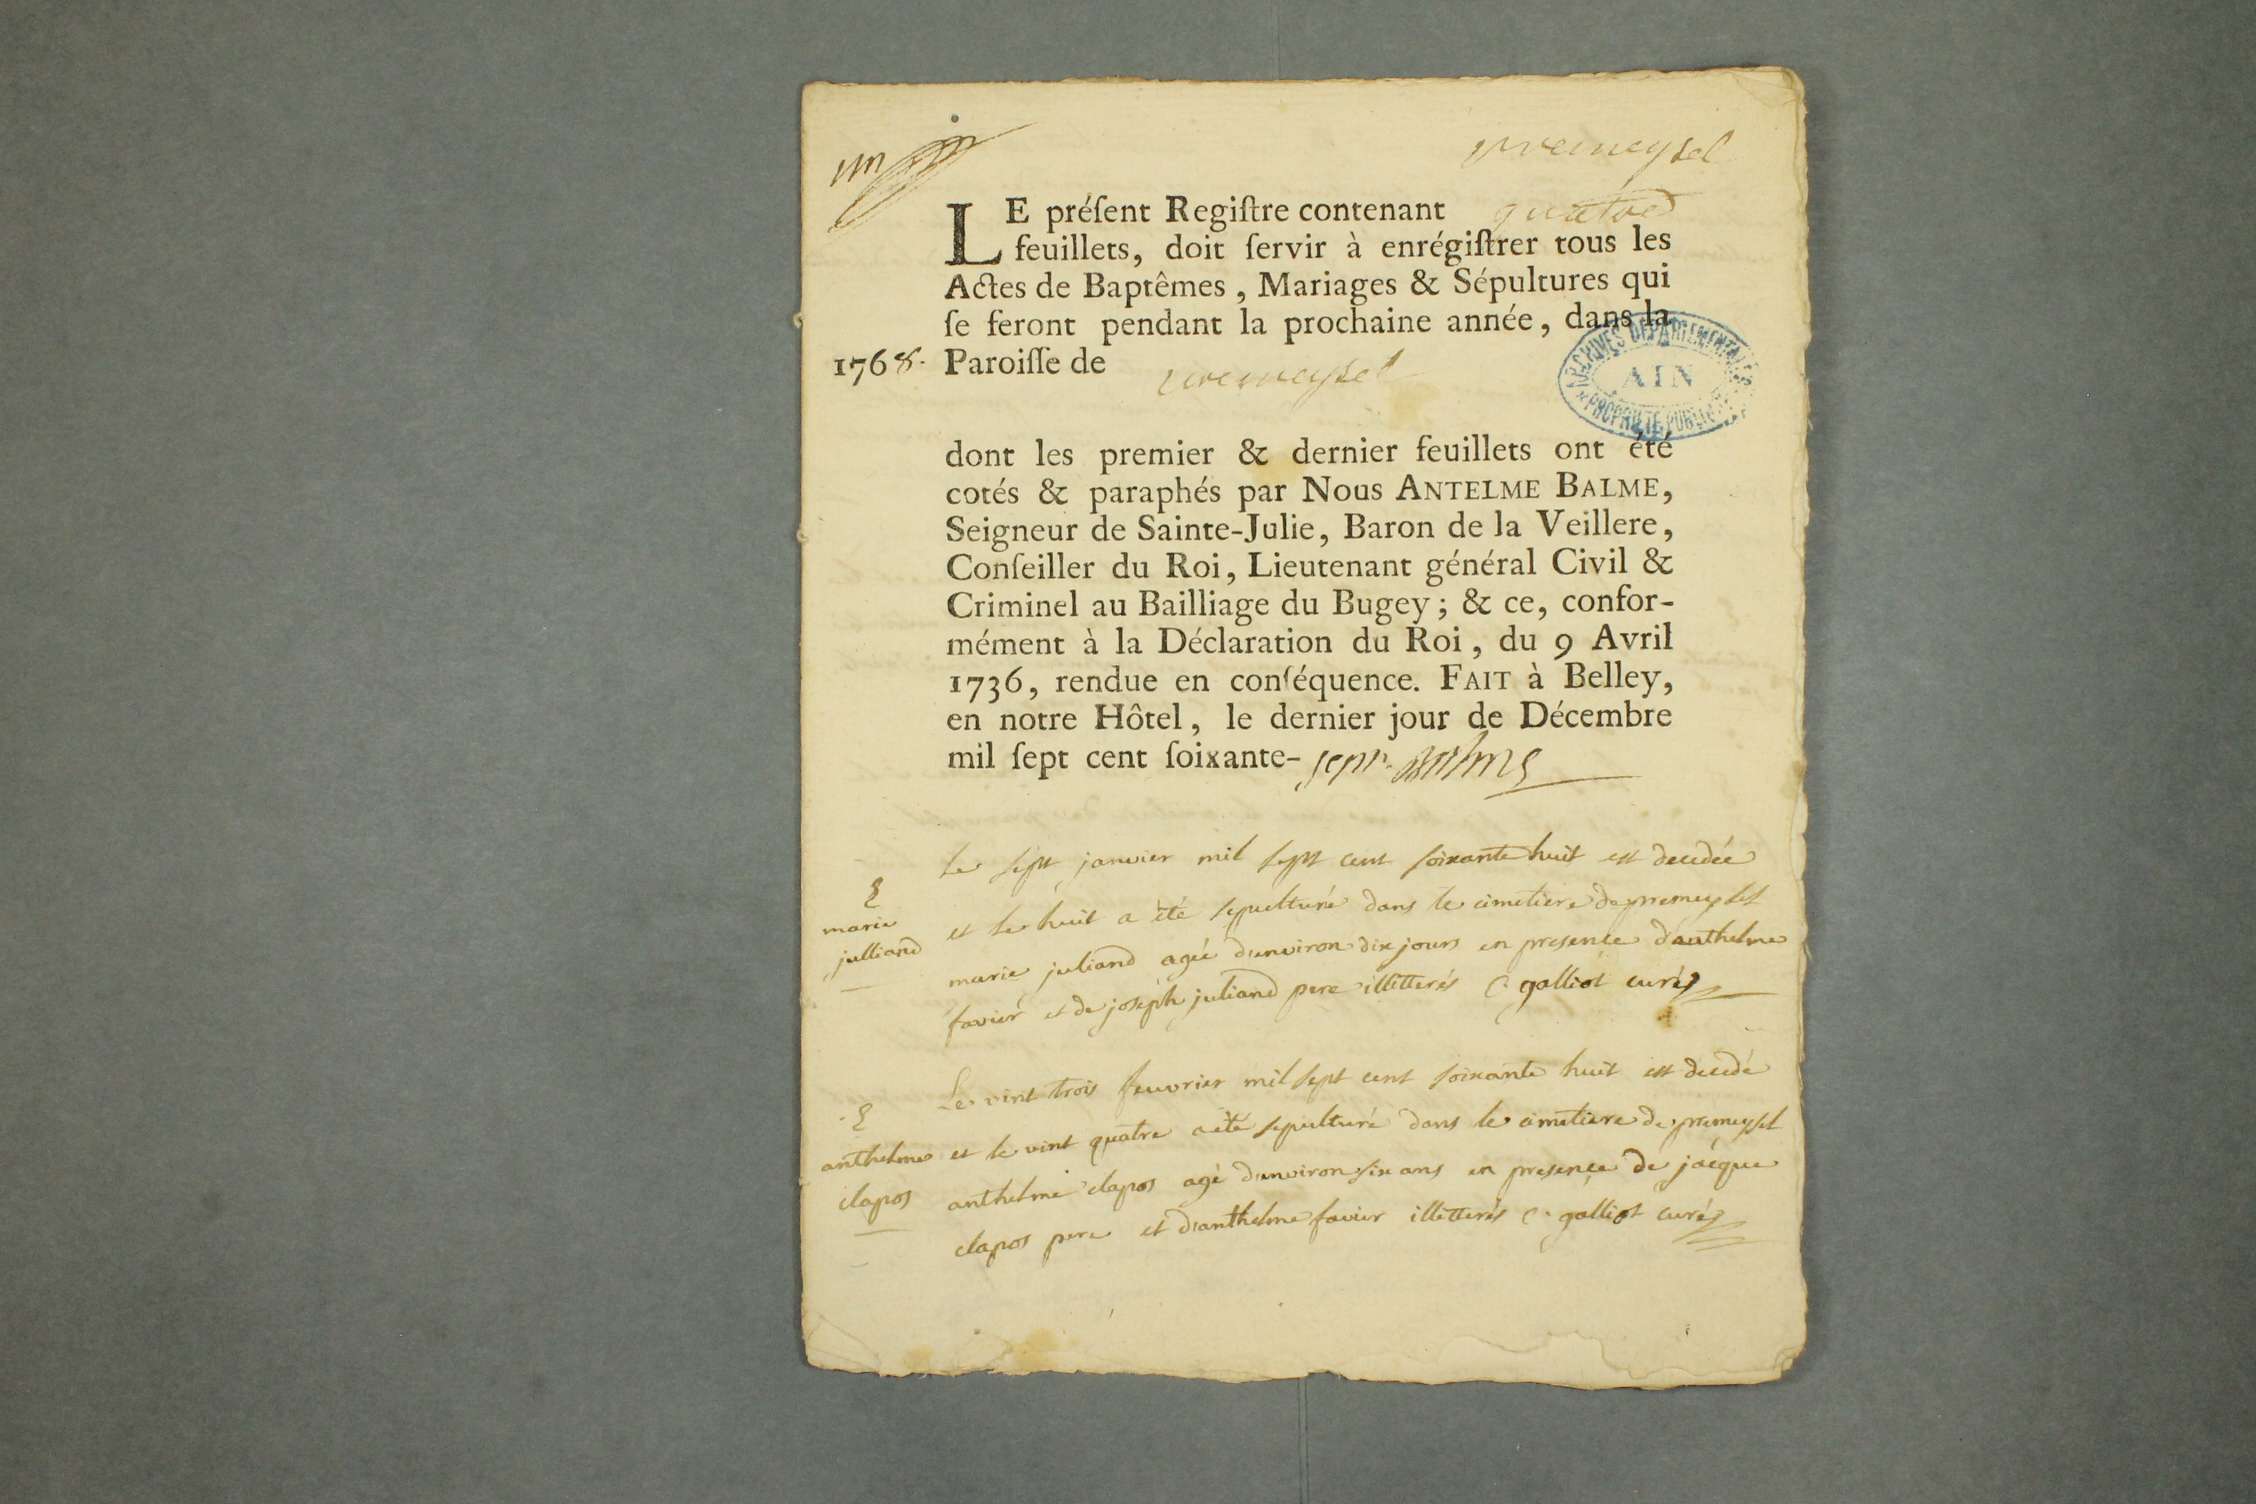 un
premeysel
LE préſent Regiſtre contenant quatre
feuillets, doit ſervir à enrégiſtrer tous les
Actes de Baptêmes, Mariages & Sépultures qui
ſe feront pendant la prochaine année, dans la
1768. Paroiſſe de premeysel
ARCHIVES DÉPARTEMENTALES
AIN
PROPRIÉTÉ PUBLIQUE
dont les premier & dernier feuillets ont été
cotés & paraphés par Nous ANTELME BALME,
Seigneur de Sainte-Julie, Baron de la Veillere,
Conſeiller du Roi, Lieutenant général Civil &
Criminel au Bailliage du Bugey; & ce, confor-
mément à la Déclaration du Roi, du 9 Avril
1736, rendue en conſéquence. FAIT à Belley,
en notre Hôtel, le dernier jour de Décembre
mil ſept cent ſoixante- sept. Balme
Le sept janvier mil sept cent soixante huit est decedée
et le huit a été sepulturé dans le cimetiere de premeysel
marie juliand agée d'environ dix jours en presence d'anthelme
favier et de joseph juliand pere illitterés C. galliot curé
marie
julliand
Le vint trois feuvrier mil sept cent soixante huit est decedé
et le vint quatre a été sepulturé dans le cimetiere de premeysel
anthelme clapos agé d'environ six ans en presence de jacque
clapos pere et d'anthelme favier illitterés C. galliot curé
anthelme
clapos